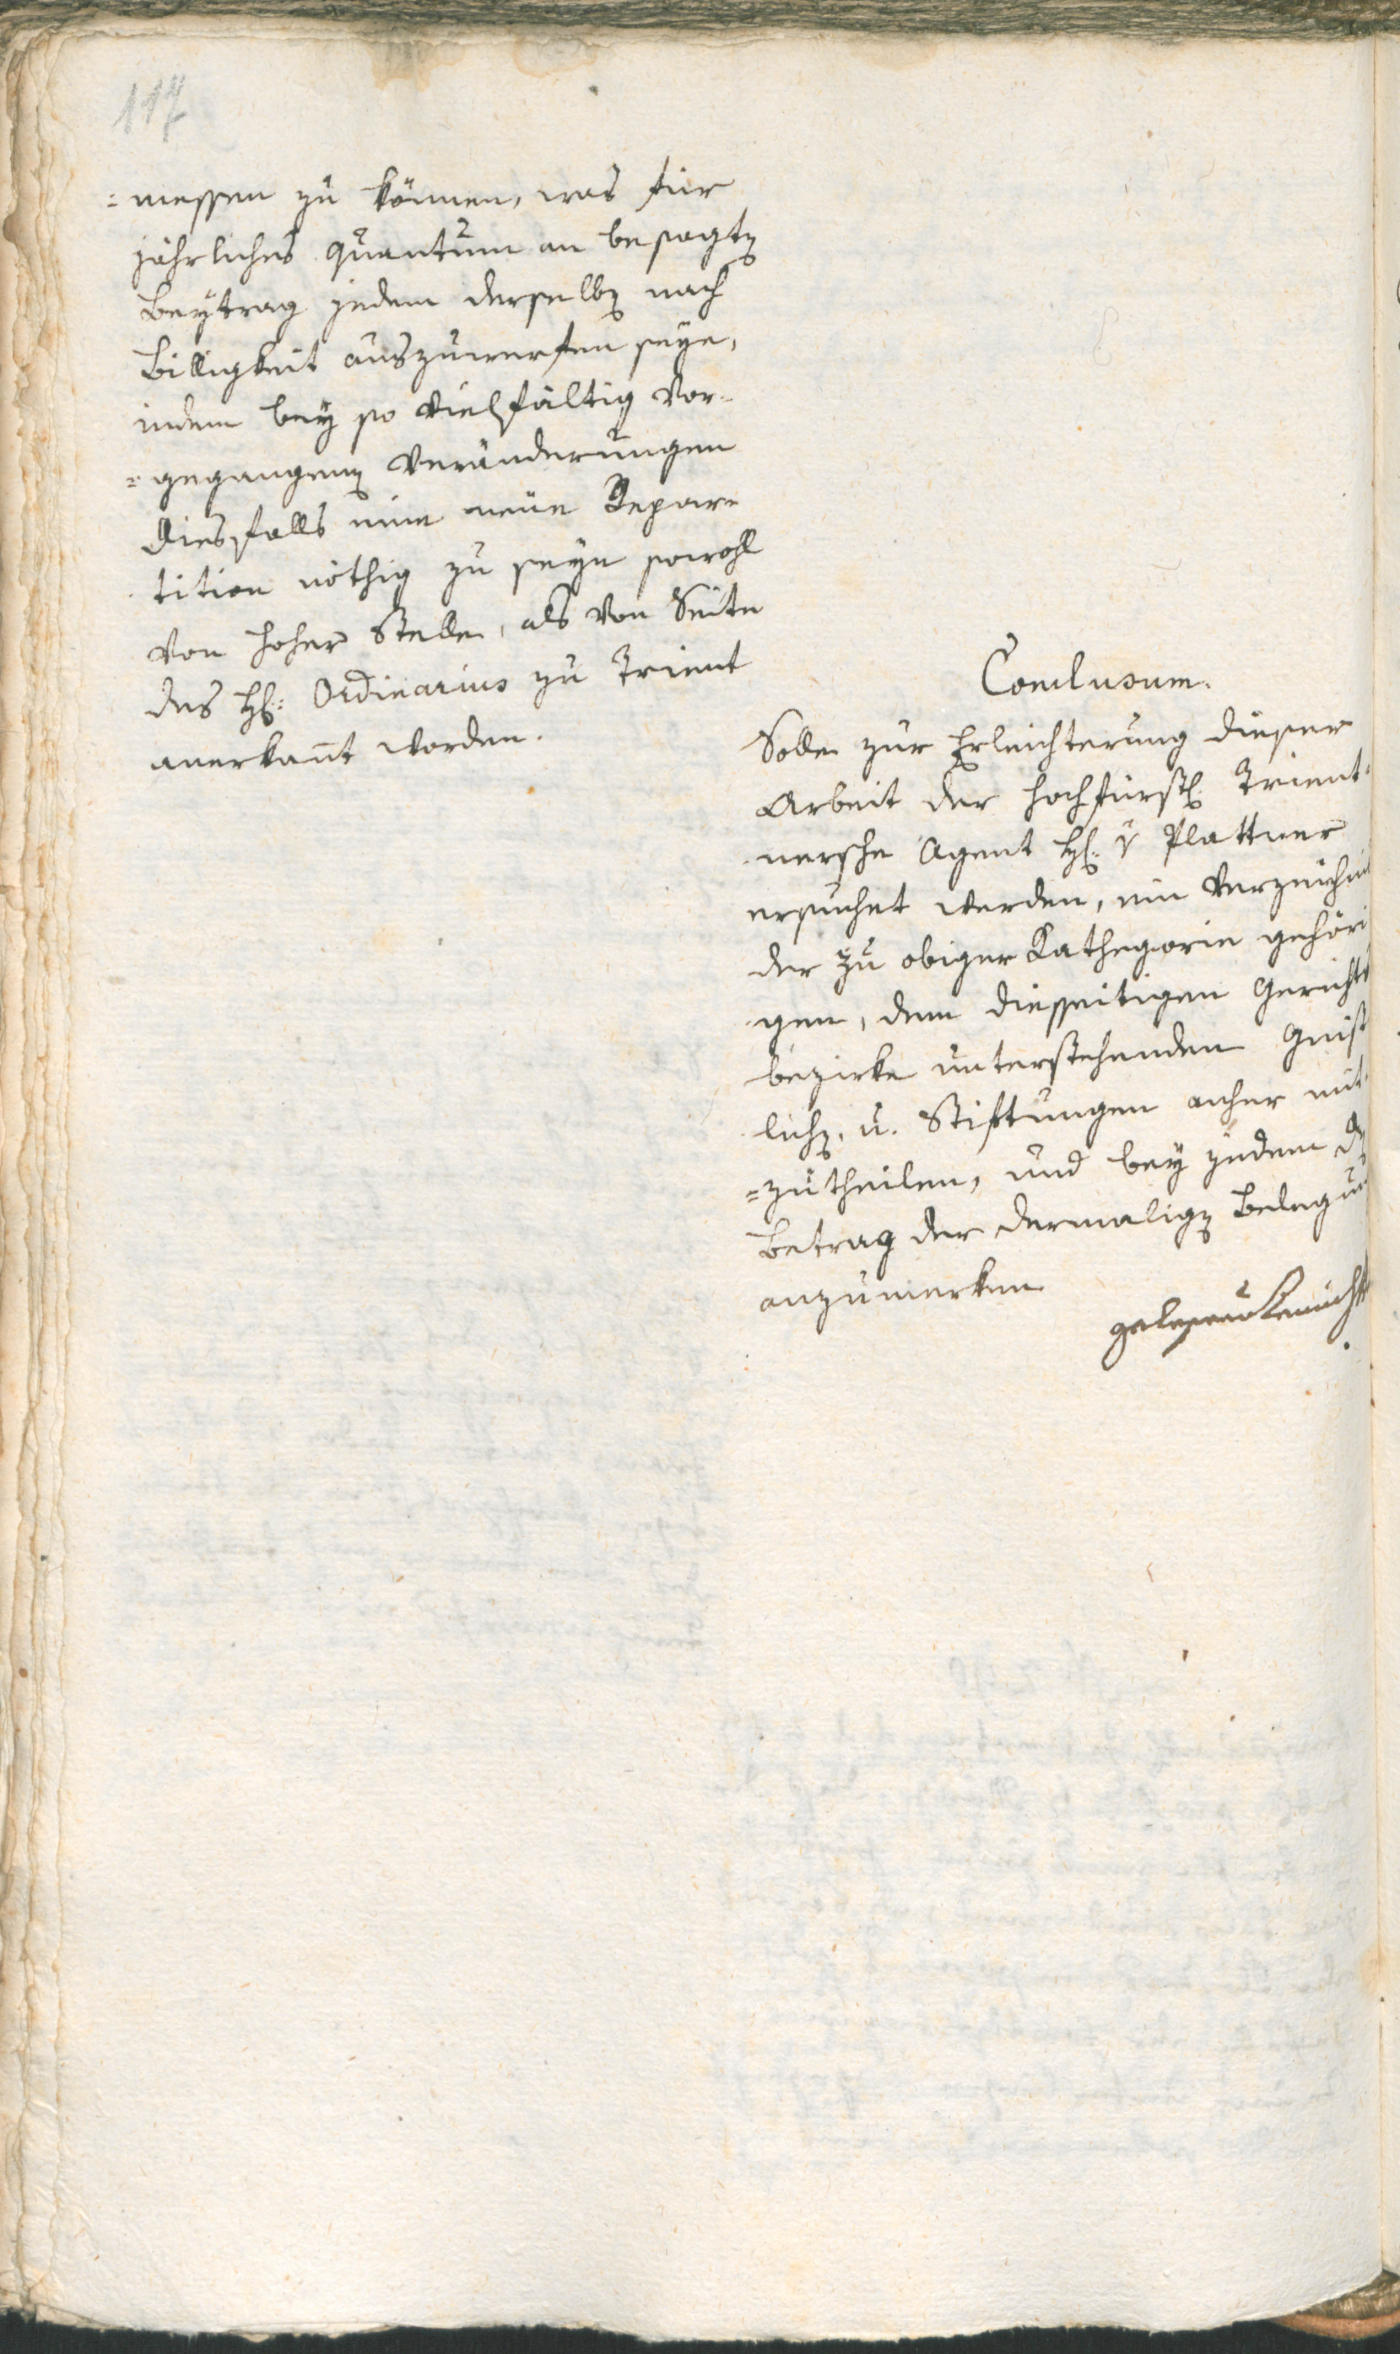 117
=messen zu können, was für
jährliches quantum an besagten
Beytrag jedem derselben nach
Billigkeit auszuwerfen seye,
indem bey so vielfältig vor=
=gegangenen Veränderungen
diesfalls eine neüe Repar=
tition nöthig zu seyn sowohl
von hoher Stelle, als von Seite
des H: Ordinarius zu Trient
anerkannt worden.
Conclusum.
Solle zur Erleichterung dieser
Arbeit der hochfürstl Trient=
nersche Agent H: v Plattner
ersuchet werden, ein Verzeichni
der zu obiger Kathegorie gehöri
gen, dem diesseitigen Gerichts
bezirke unterstehenden Geist
lichen, u. Stiftungen anher mit
=zutheilen, und bey jedem den
Betrag der dermaligen Belegun
anzumerken